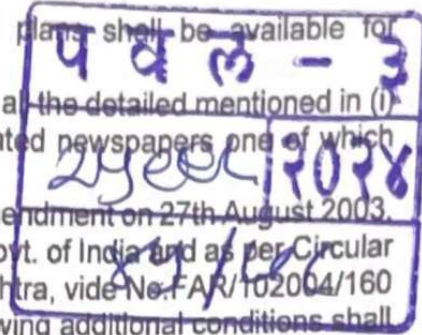 plans shall be available for
प व ल - ३
all the detailed mentioned in (i)-
ated newspapers one of which
२०२४
endment on 27th August 2003.
ovt. of India and as per Circular
htra, vide No.FAR/102004/160
wing additional conditions shall